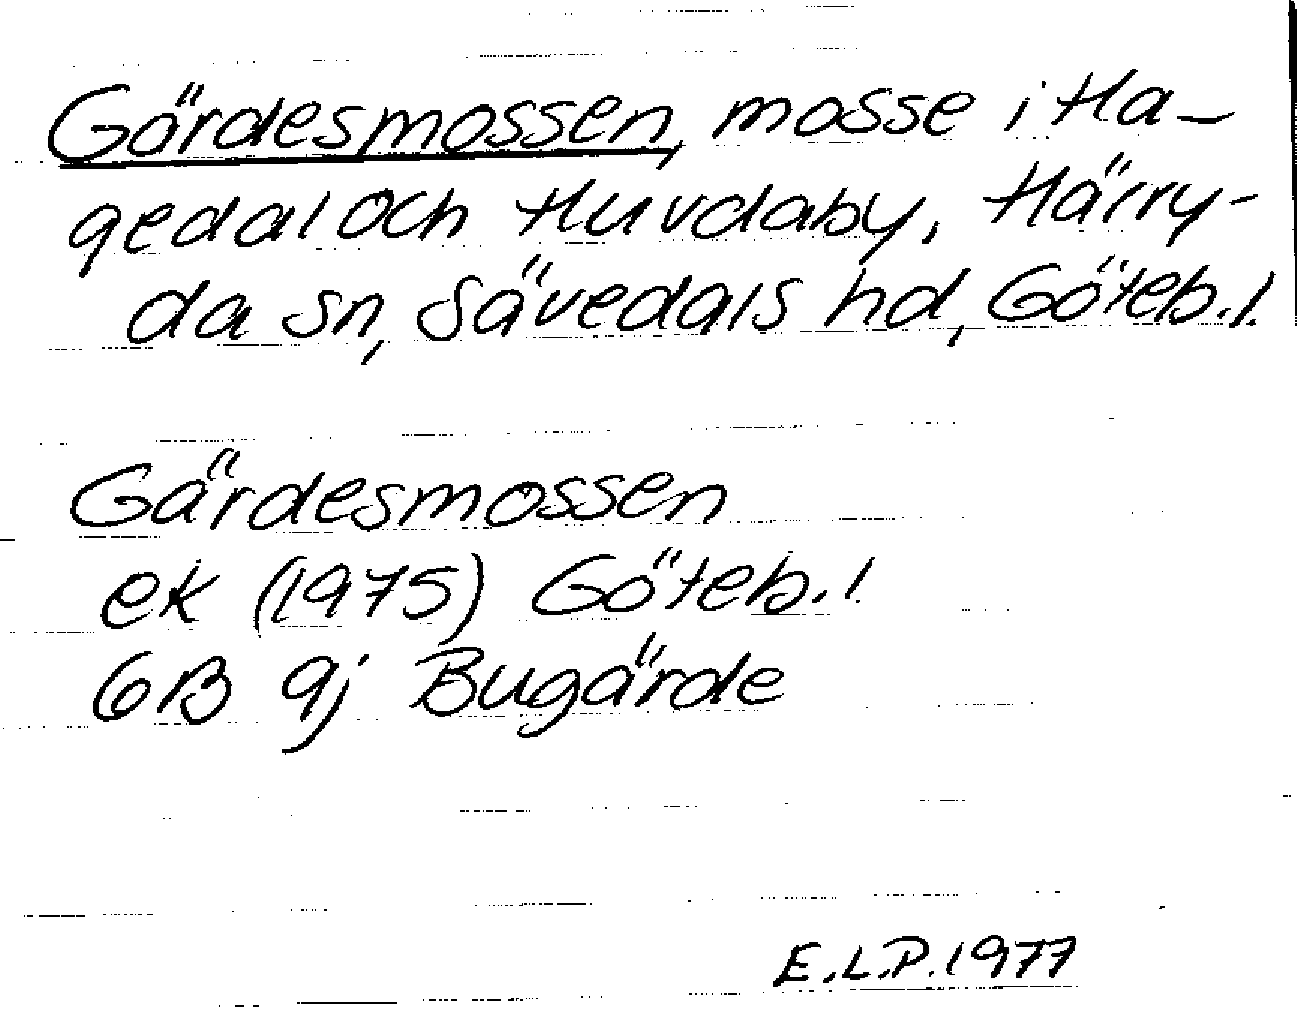 Gärdesmossen, mosse i Ha-
gedal och Huvdaby, Härry-
da sn, Sävedals hd, Göteb.l.
Gärdesmossen
ek (1975) Göteb.l.
6B 9j Bugärde
E.L.P. 1977